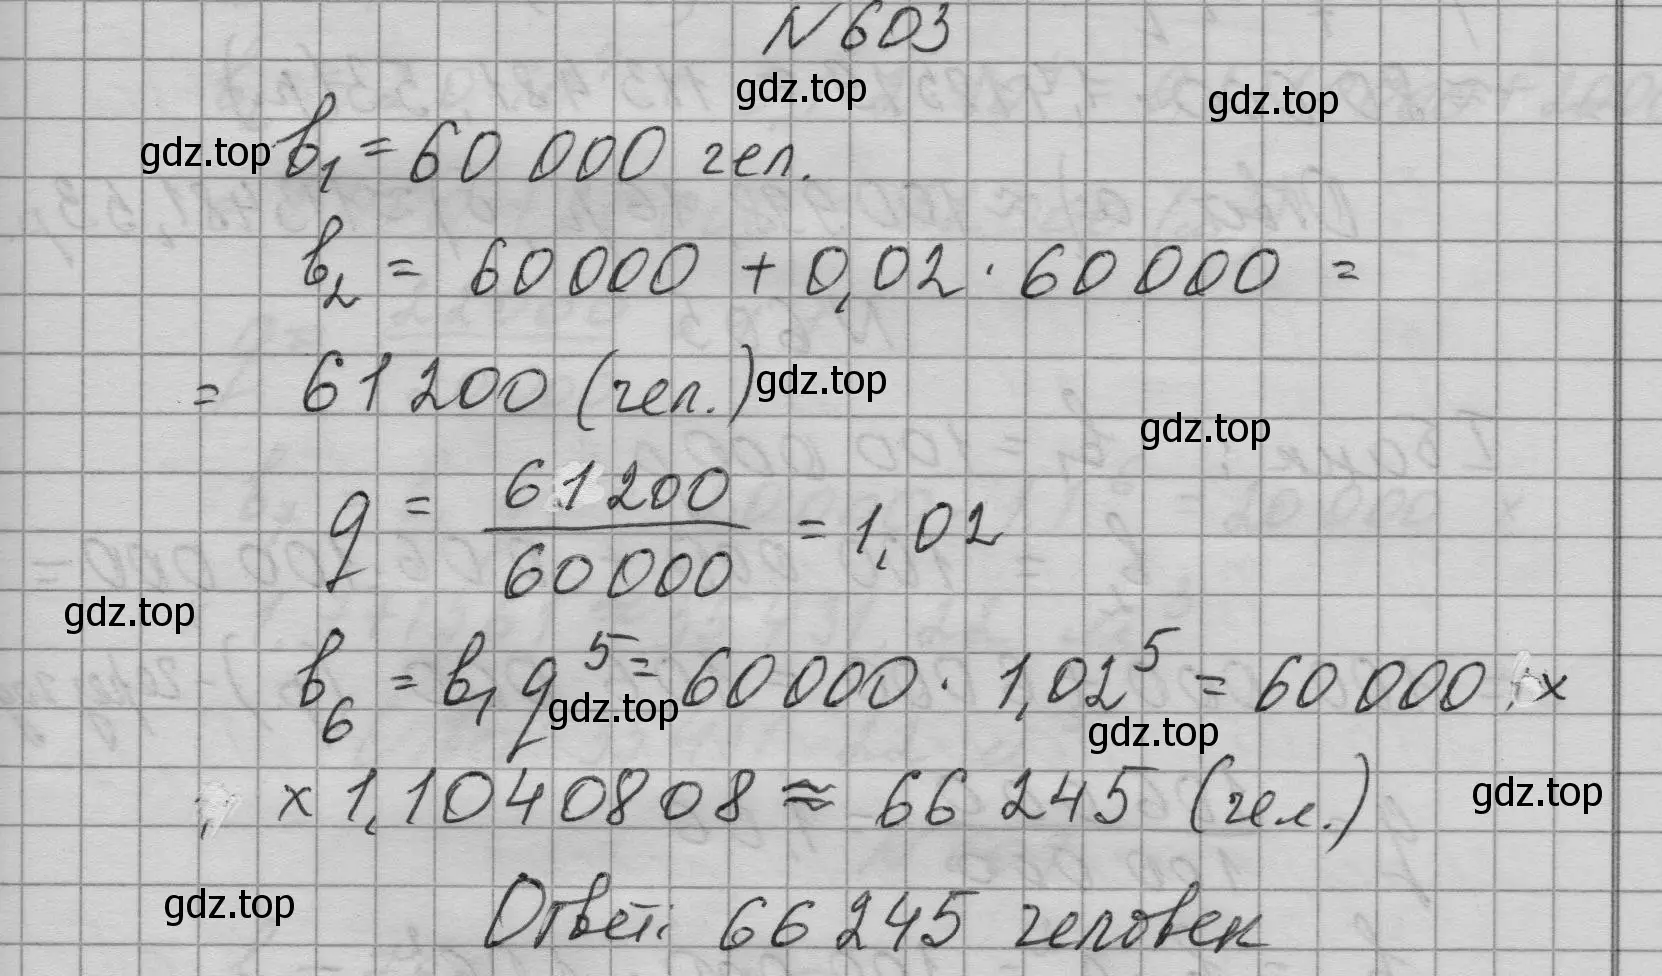 N 603
gdz.top
gdz.top
gdz.top b₁ = 60 000 чел.
b₂ = 60000 + 0,02 · 60 000 =
= 61 200 (чел.) gdz.top
gdz.top
q = 61 200 / 60 000 = 1,02
gdz.top
b₆ = b₁ q⁵ = 60 000 · 1,02⁵ = 60 000 ×
gdz.top gdz.top
× 1,1040808 ≈ 66 245 (чел.) gdz.top
gdz.top
Ответ: 66 245 человек